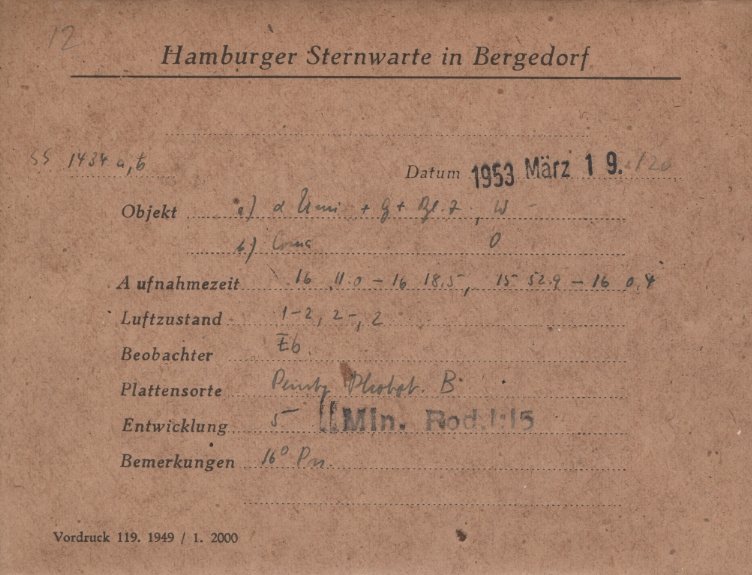 12
Hamburger Sternwarte in Bergedorf
SS 1434 a, b
Datum 1953 März 19./20
Objekt a) α Umi + G + Bl. 7, W
b) Coma O
Aufnahmezeit 16 11.0 – 16 18.5, 15 52.9 – 16 0.4
Luftzustand 1–2, 2–, 2
Beobachter
Plattensorte Perutz B
Entwicklung 5 Min. Rod. 1:15
Bemerkungen 16°
Vordruck 119. 1949 / 1. 2000